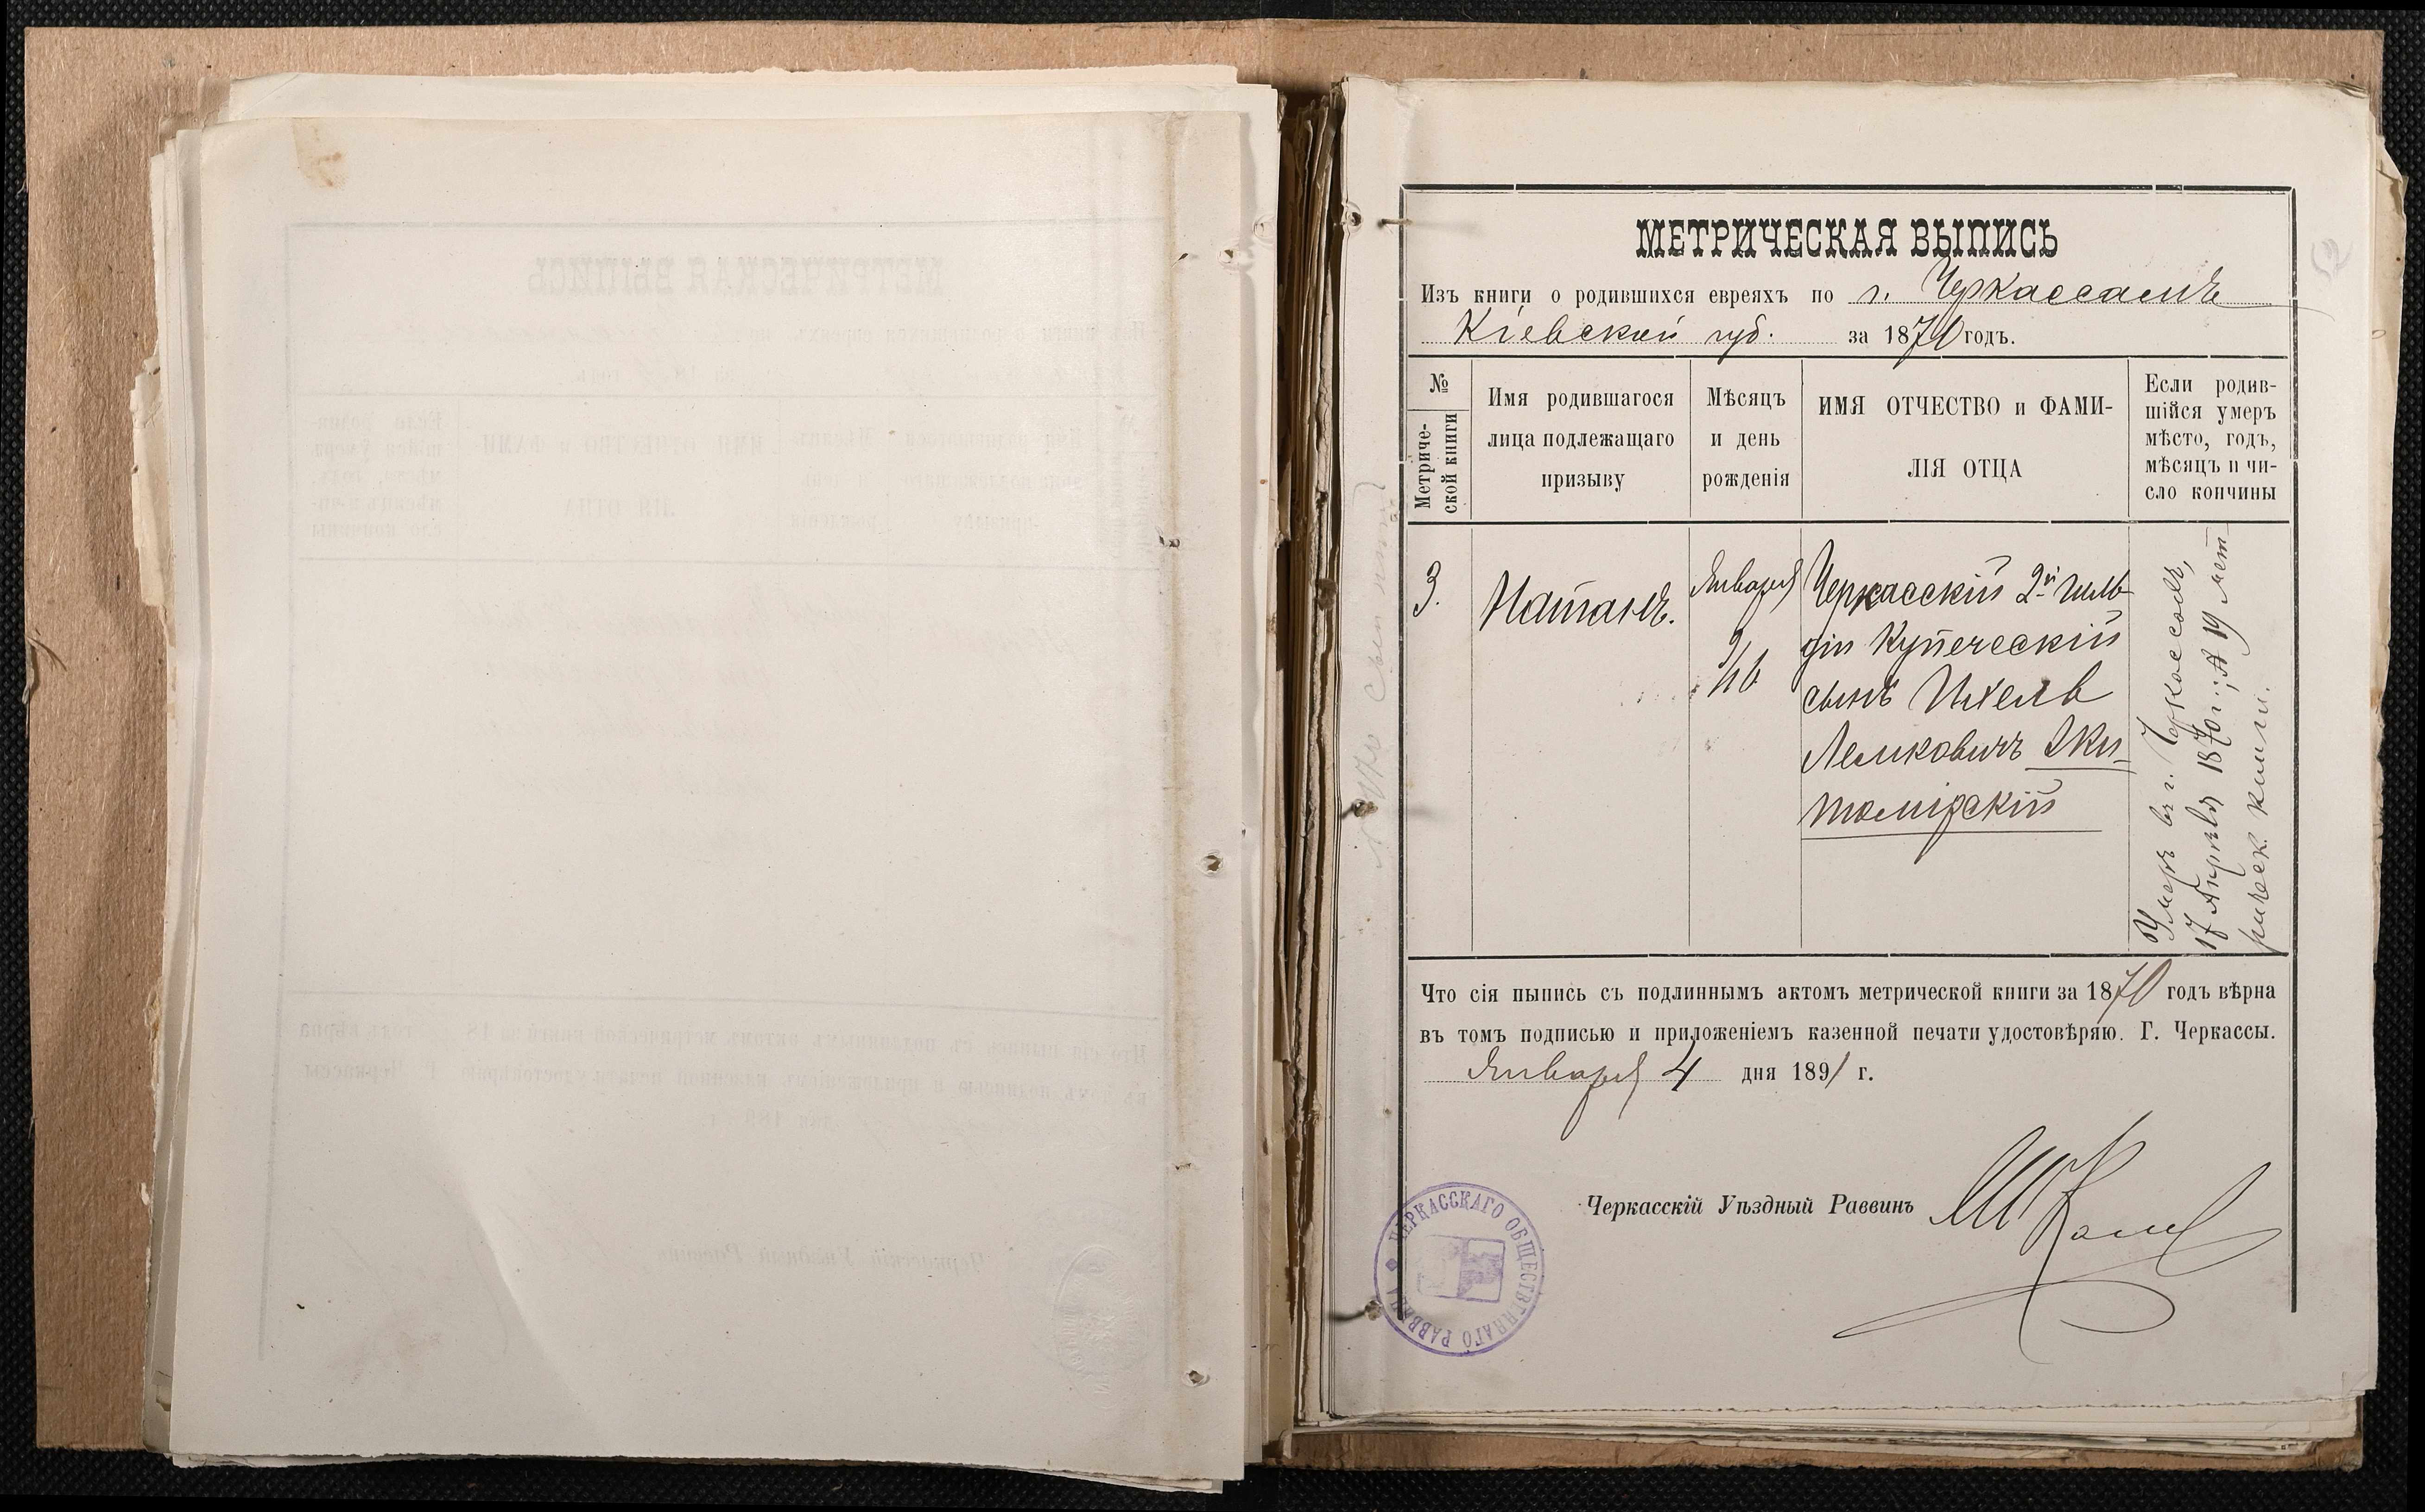 МЕТРИЧЕСКАЯ ВЫПИСЬ
Изъ книги о родившихся евреяхъ по г. Черкассамъ
Кіевской губ. за 1870 годъ.
№
Метриче-
ской книги
Имя родившагося
лица подлежащаго
призыву
Мѣсяцъ
и день
рожденія
ИМЯ ОТЧЕСТВО и ФАМИ-
ЛІЯ ОТЦА
Если родив-
шійся умеръ
мѣсто, годъ,
мѣсяцъ и чи-
сло кончины
3.
Натанъ.
Января
Черкасскій 2й гиль-
діи Купеческій
сынъ Ихель
Лемковичъ Жи-
томірскій
Умеръ въ г. Черкассахъ,
17 Апрѣля 1870 г.; № 19 мет-
рическ. книги.
Что сія пыпись съ подлиннымъ актомъ метрической книги за 1870 годъ вѣрна
въ томъ подписью и приложеніемъ казенной печати удостовѣряю. Г. Черкассы.
Января 4 дня 1891 г.
Черкасскій Уѣздный Раввинъ
ЧЕРКАССКАГО ОБЩЕСТВЕННАГО РАВВИНА